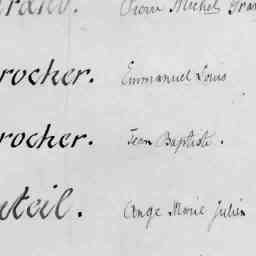 Pierre Michel
rocher. Emmanuel Louis
rocher. Jean Baptiste.
uteil. Ange Marie Julien